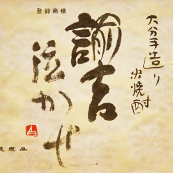 大分手造り
米焼酎
登録商標
諭吉
泣かせ